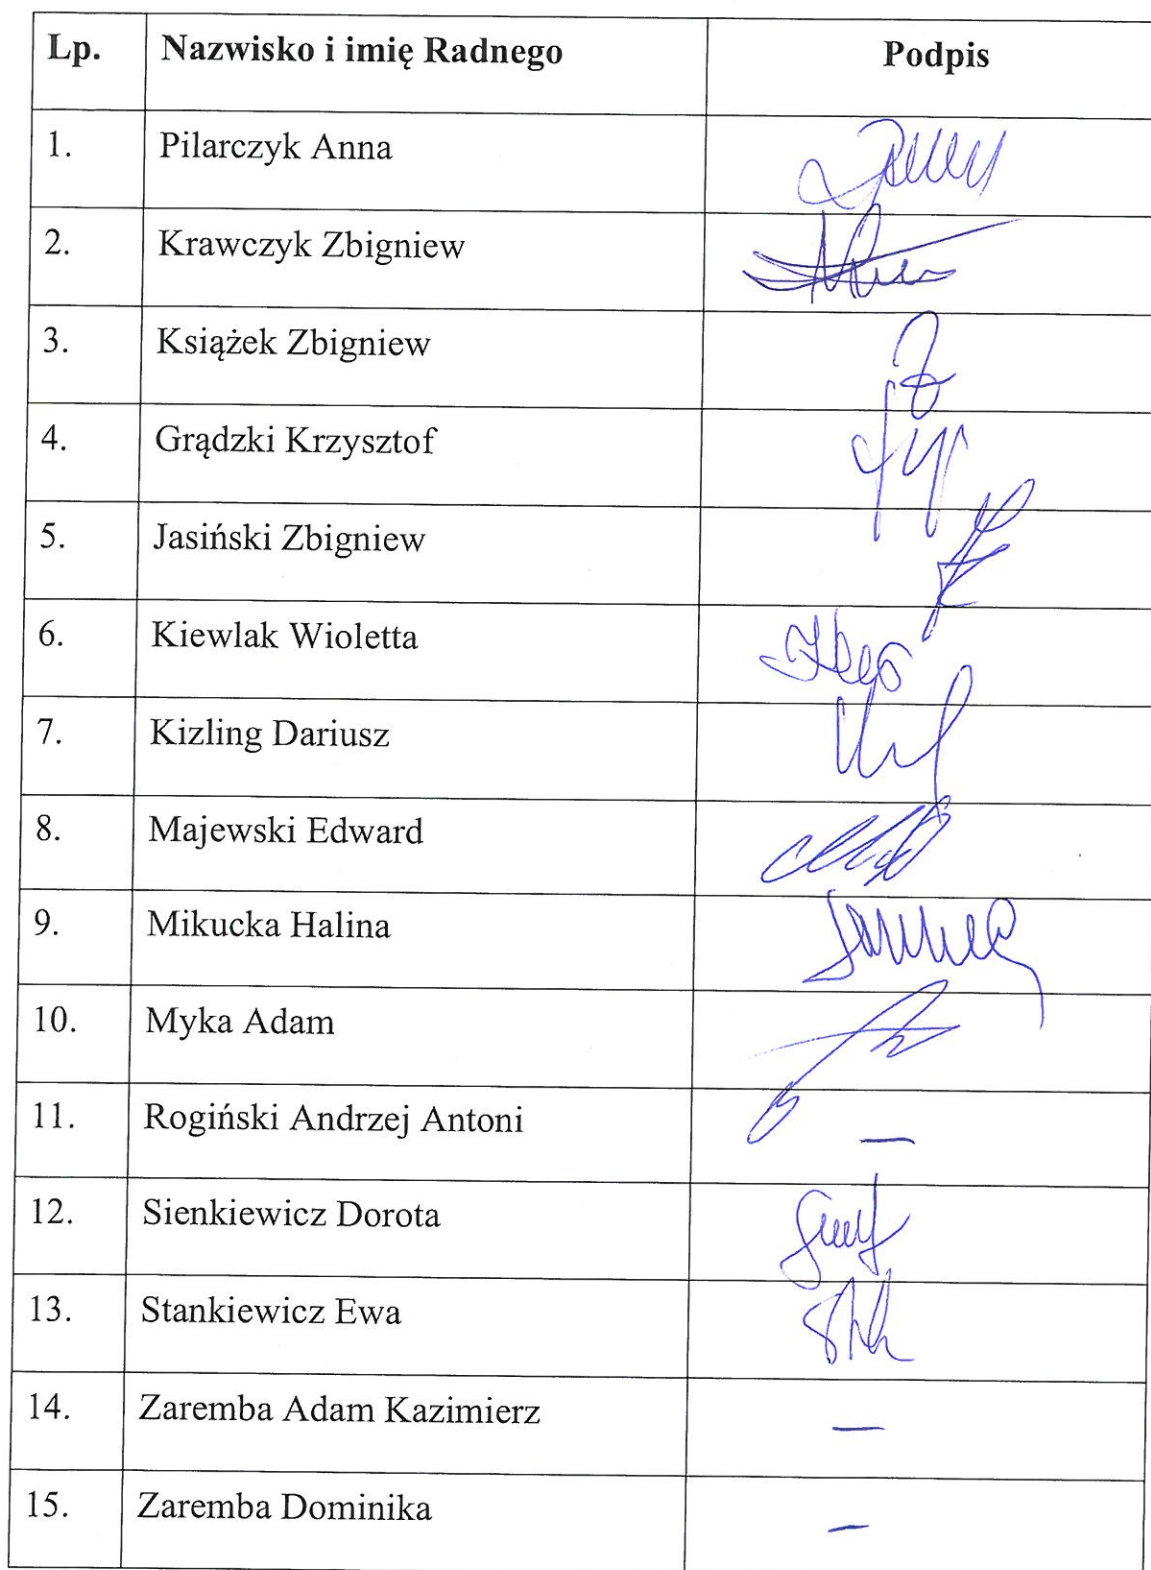 Lp. Nazwisko i imię Radnego Podpis
1. Pilarczyk Anna
2. Krawczyk Zbigniew
3. Książek Zbigniew
4. Grądzki Krzysztof
5. Jasiński Zbigniew
6. Kiewlak Wioletta
7. Kizling Dariusz
8. Majewski Edward
9. Mikucka Halina
10. Myka Adam
11. Rogiński Andrzej Antoni —
12. Sienkiewicz Dorota
13. Stankiewicz Ewa
14. Zaremba Adam Kazimierz —
15. Zaremba Dominika —